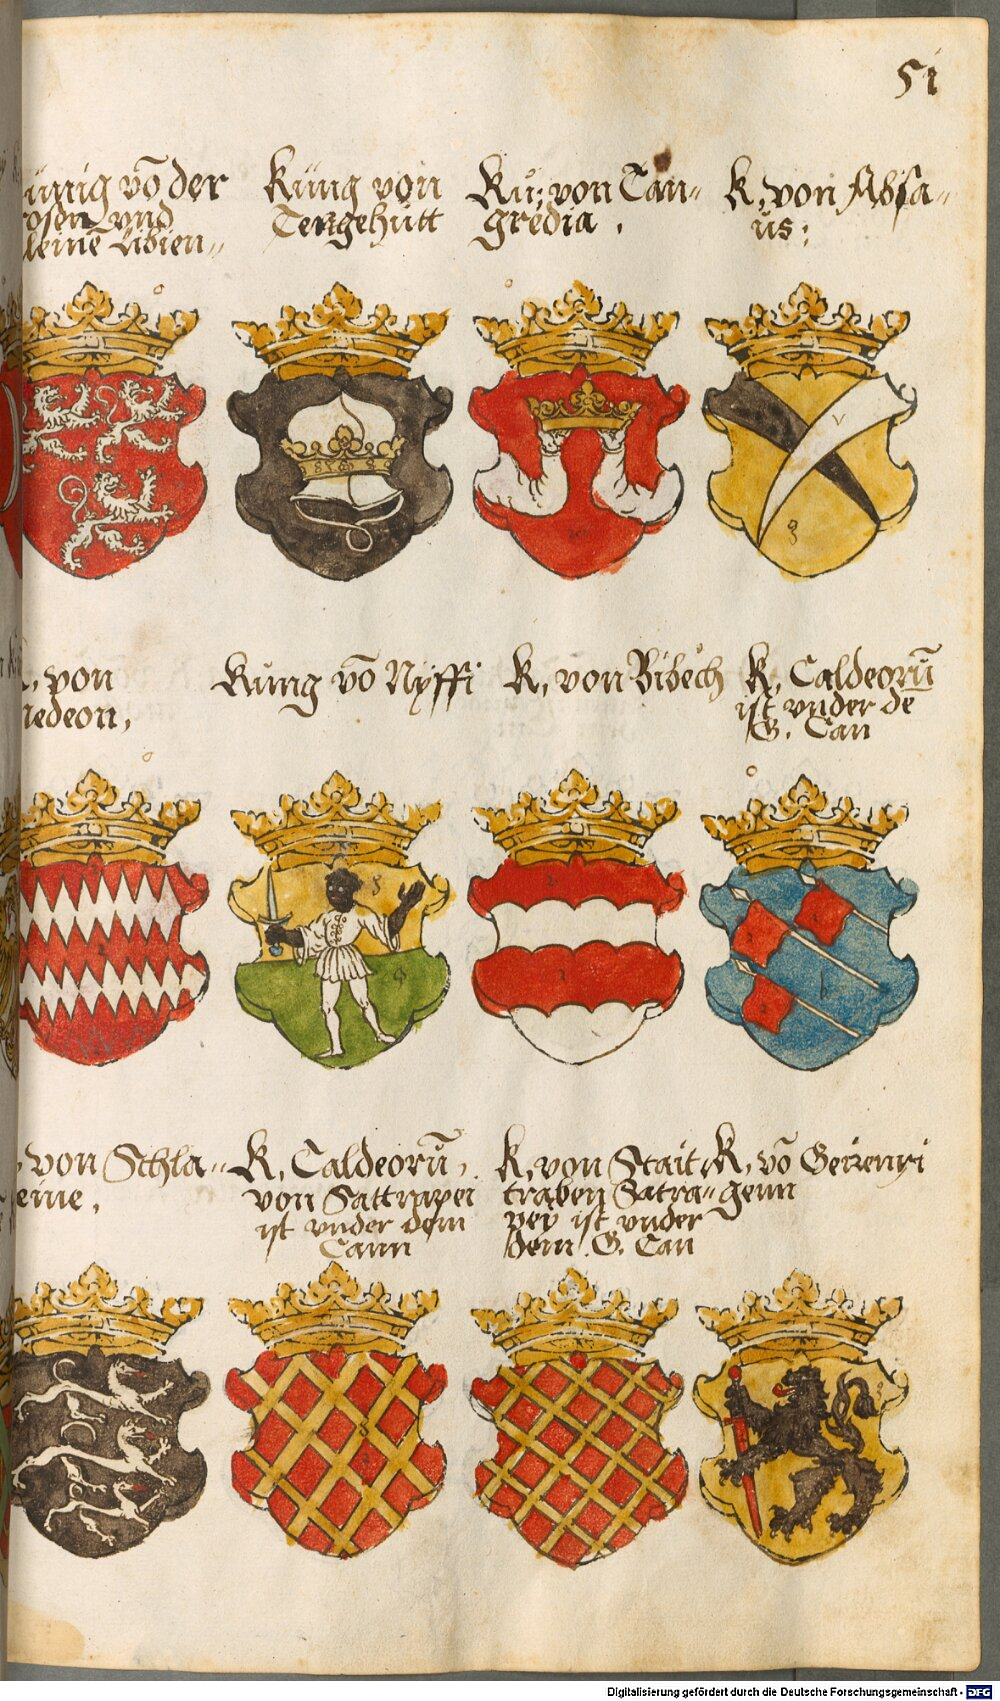 51
ünig vō der
osen vnd
leine Libien„
Küng von
Tengehütt
Kü: von Tan„
gredia .
K, von Absa„
us:
, von
iedeon,
Küng vō Nyffi
K, von Bibech
K, Caldeorū
ist vnder de
G. Can
, von Schla„
eine,
K, Caldeorū,
von Sattrapei
ist vnder dem
Cann
K, von Stait
traben Satra„
pey ist vnder
dem G. Can
K, vō Geirenyi
genn
Digitalisierung gefördert durch die Deutsche Forschungsgemeinschaft - DFG